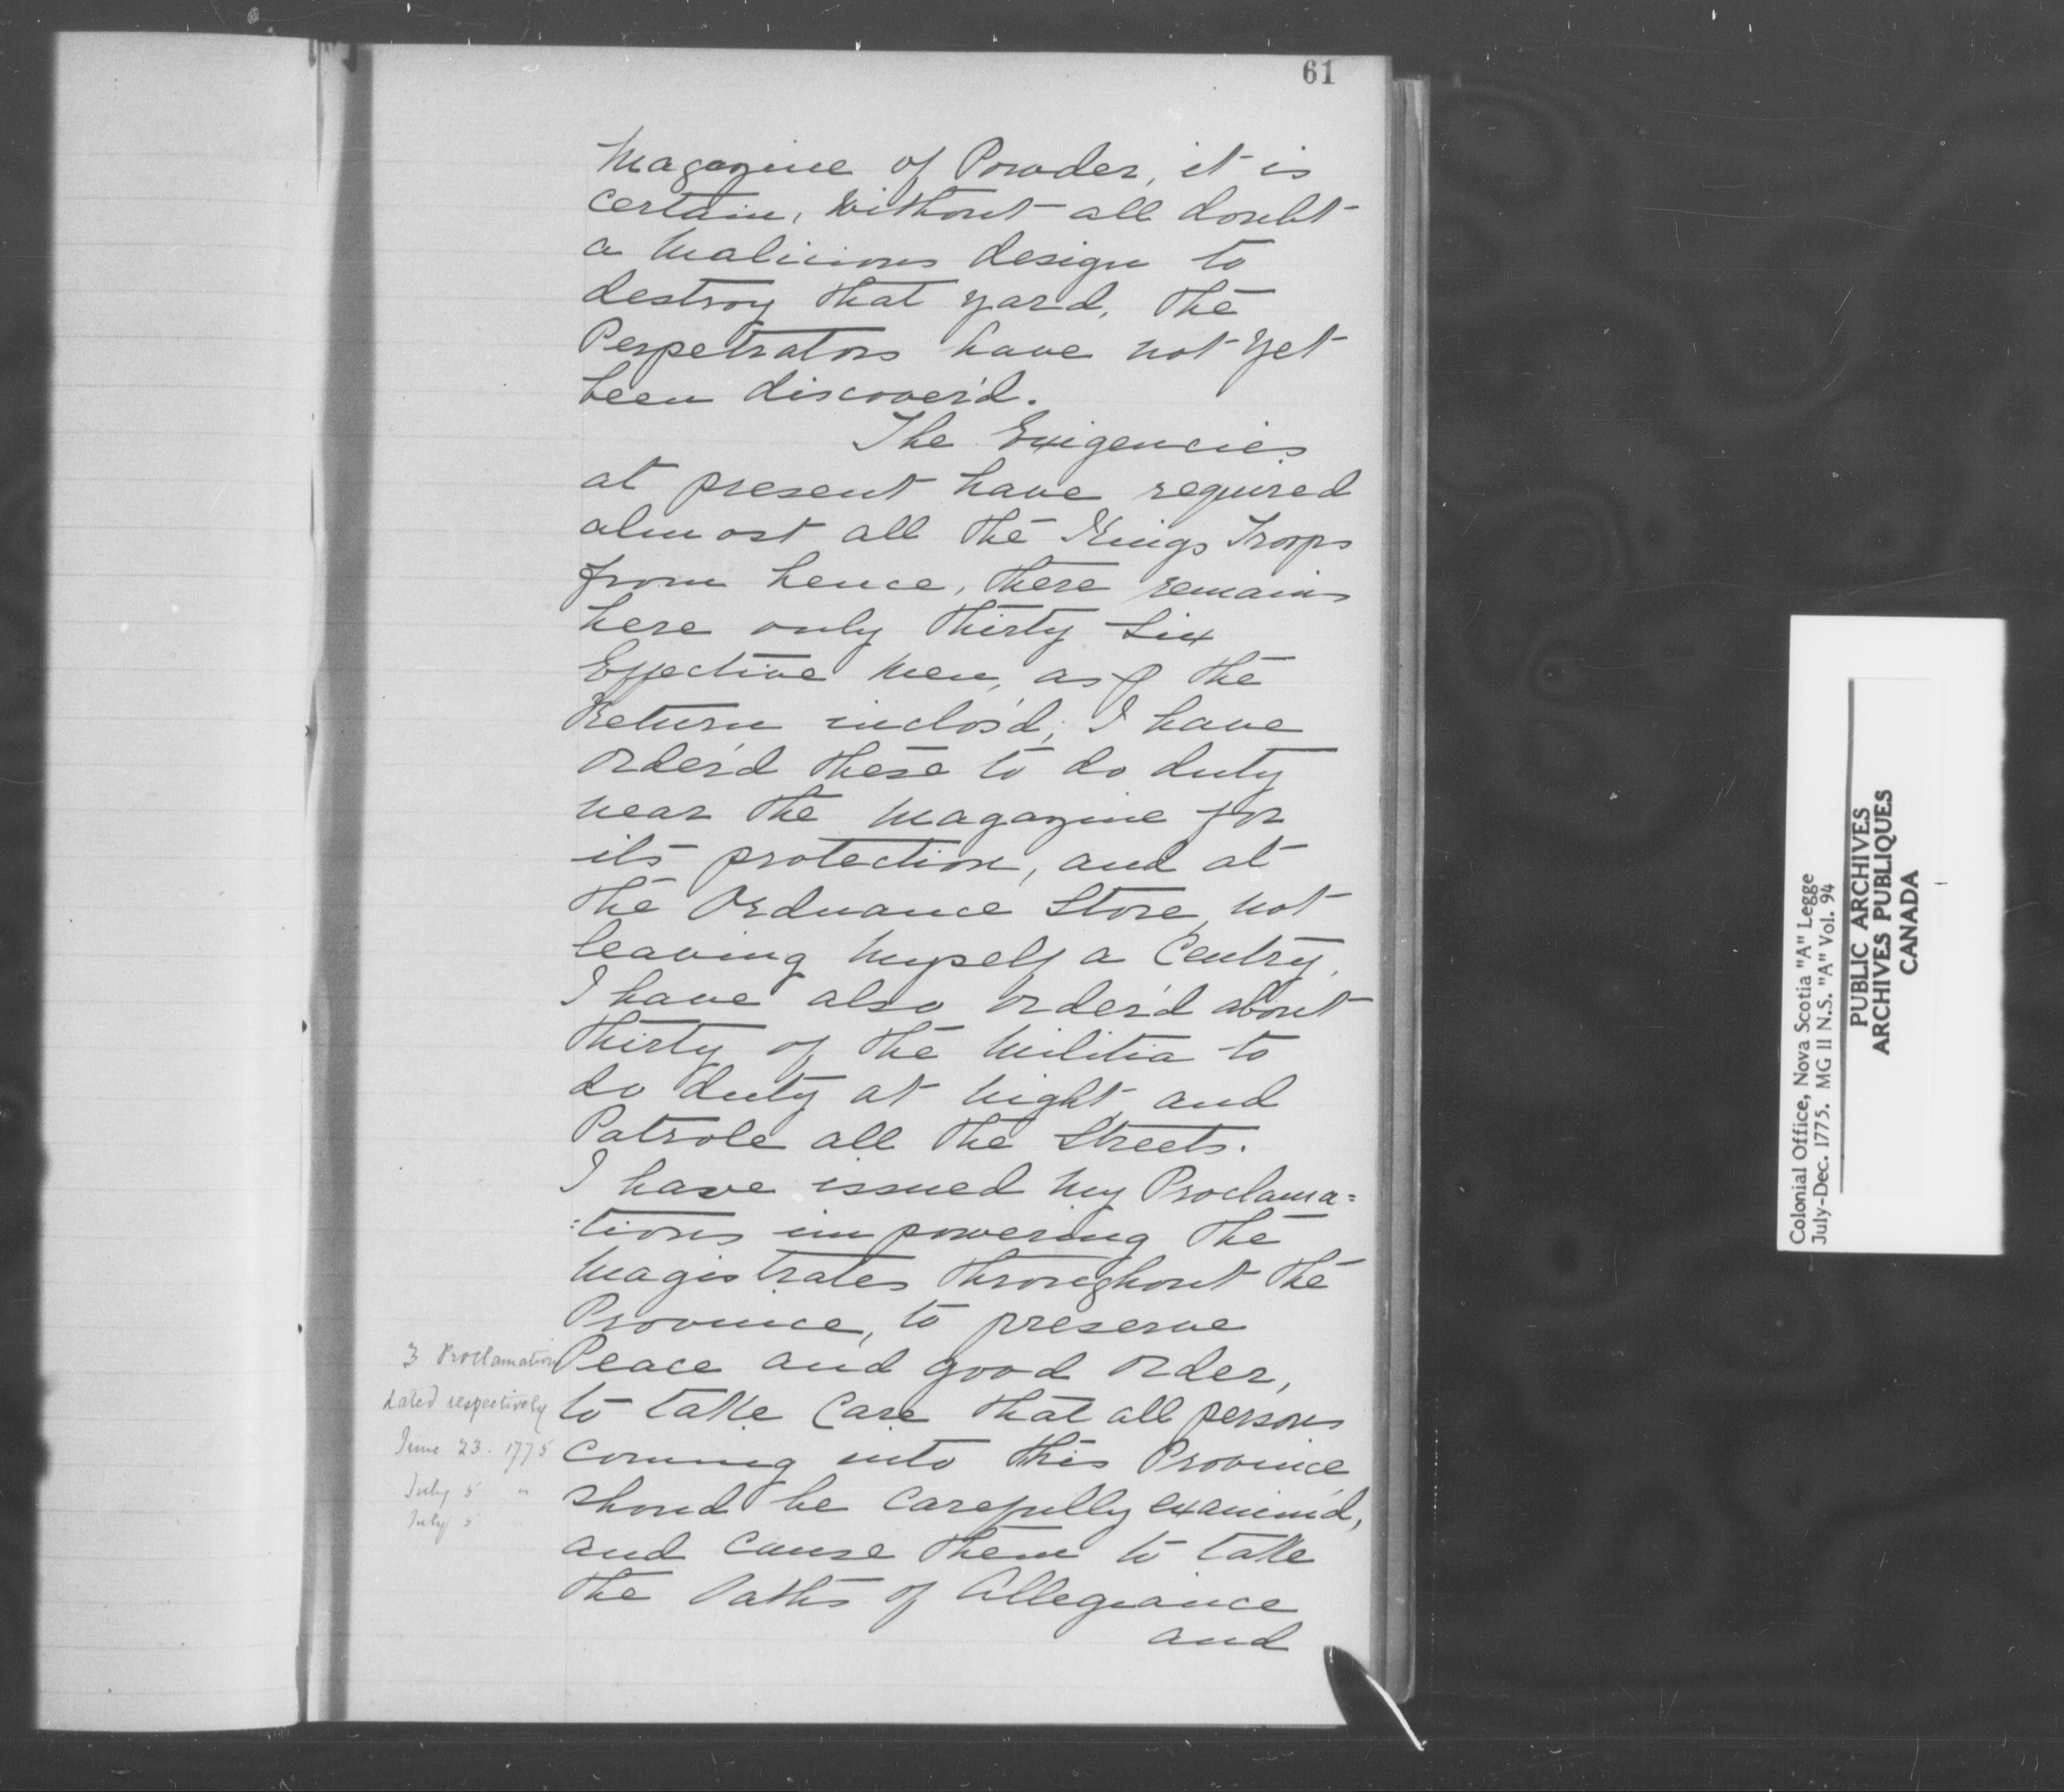 61
Magazine of Powder, it is
certain, without all doubt
a Malicious design to
destroy that yard, the
Perpetrators have not yet
been discover'd.
The Exigencies
at present have required
almost all the Kings Troops
from hence, there remains
here only Thirty Six
Effective Men, as ⅌ the
Return inclos'd; I have
Order'd these to do duty
near the Magazine for
its protection, and at
the Ordnance Store, not
leaving Myself a Centry.
I have also order'd about
thirty of the Militia to
do duty at Night and
Patrole all the Streets.
I have issued My Proclama=
:tions impowering the
Magistrates throughout the
Province, to preserve
Peace and good order,
to take Care that all persons
coming into this Province
shoud be Carefully examin'd,
and Cause them to take
the Oaths of Allegiance
and
3 Proclamation
dated respectively
June 23. 1775
July 5 "
July 5 "
Colonial Office, Nova Scotia "A" Legge
July-Dec. 1775. MG 11 N.S. "A" Vol. 94
PUBLIC ARCHIVES
ARCHIVES PUBLIQUES
CANADA